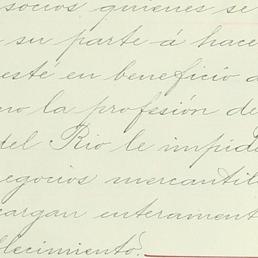 socios quienes se
su parte á hace
esté en beneficio d
mo la profesión de
del Rio le impid
egocios mercantil
cargan enterament
blecimiento.